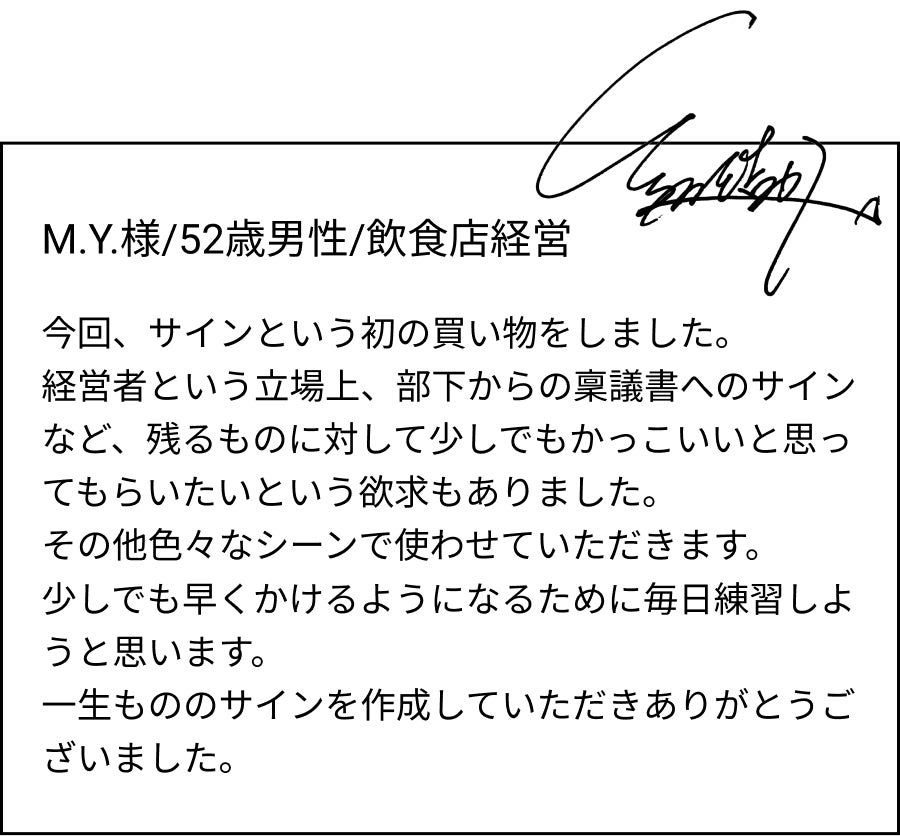 M.Y.様/52歳男性/飲食店経営
今回、サインという初の買い物をしました。
経営者という立場上、部下からの稟議書へのサイン
など、残るものに対して少しでもかっこいいと思っ
てもらいたいという欲求もありました。
その他色々なシーンで使わせていただきます。
少しでも早くかけるようになるために毎日練習しよ
うと思います。
一生もののサインを作成していただきありがとうご
ざいました。